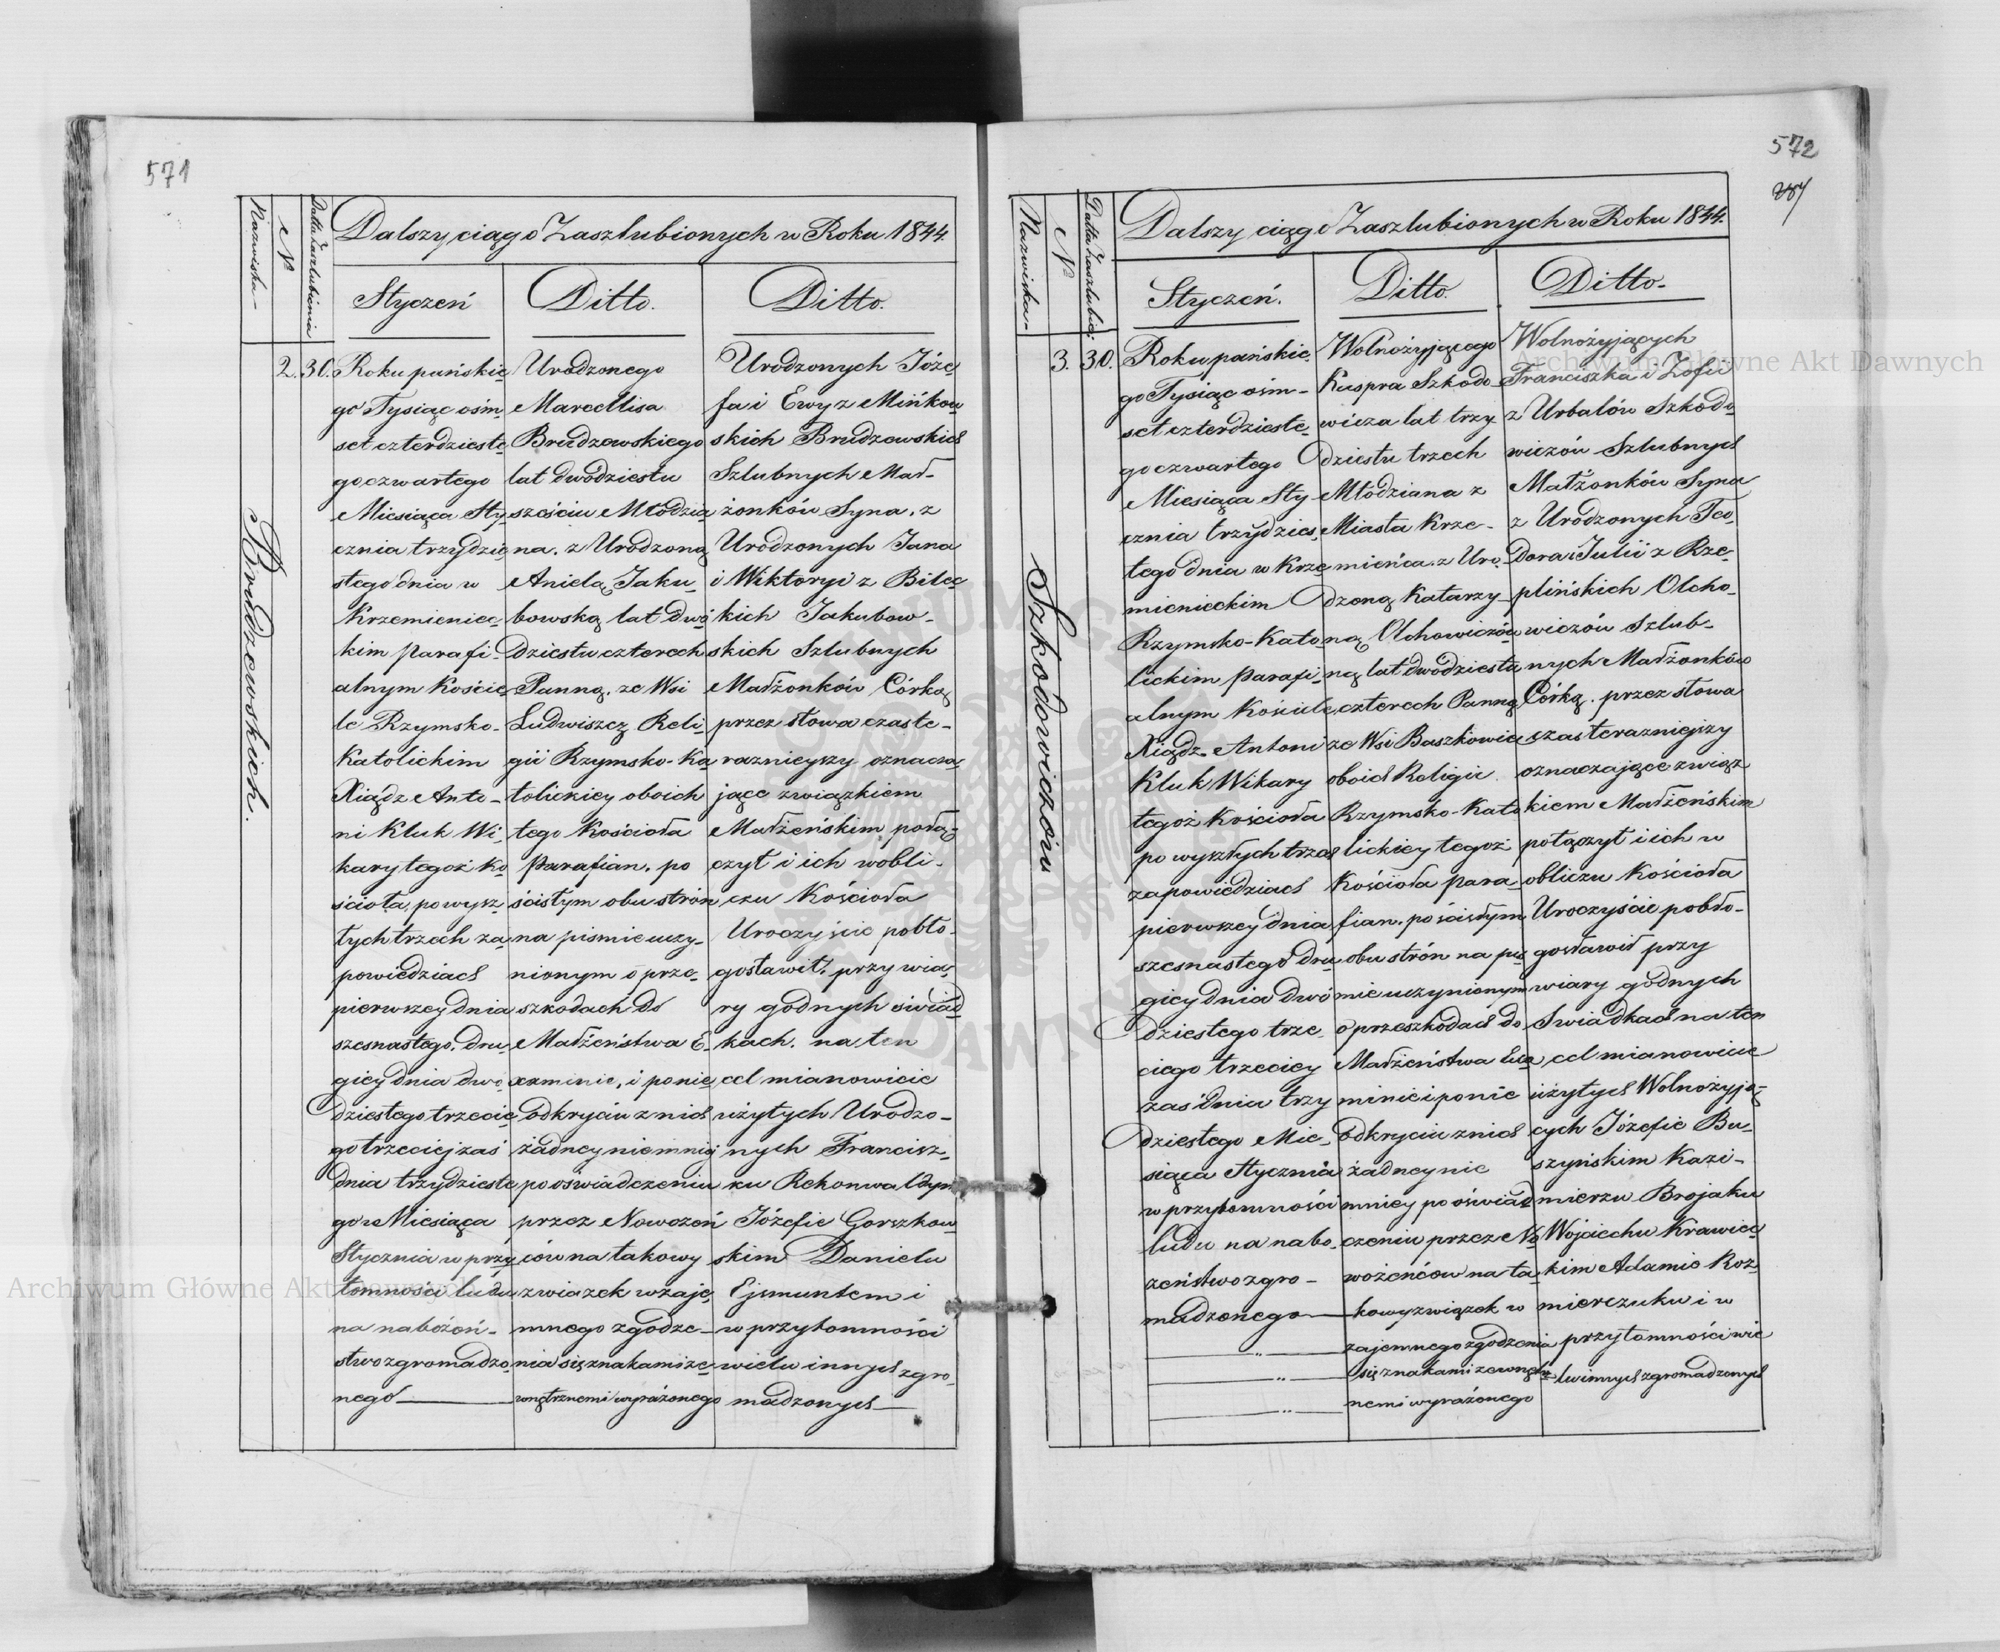 571
Dalszy ciąg o Zaszlubionych w Roku 1844.
Nazwiska
N
Datta Zaszlubienia
Styczeń
Ditto.
Ditto.
Brudzewskich.
2.
30.
Roku pańskie,
go Tysiąc ośm,
set czterdzieste,
go czwartego
Miesiąca Sty
cznia trzydzie,
stego dnia w
Krzemieniec,
kim parafi-
alnym Koście
le Rzymsko-
Katolickim
Xiądz Anto-
ni Kluk Wi-
kary tegoż ko
ścioła, po wysz,
łych trzech za,
powiedziach
pierwszey dnia
szesnastego, dru,
giey dnia dwó
dziestego trzecie,
go trzeciej zaś
dnia trzydzieste
go Miesiąca
Stycznia w przy
tomności ludu
na nabożeń-
stwo zgromadzo,
nego
Urodzonego
Marcellisa
Brudzewskiego
lat dwódziestu
sześciu Młodzia
na. z Urodzoną
Anielą Jaku-
bowską lat dwó
dziestu czterech
Panną. ze Wsi
Ludwiszcz Reli-
gii Rzymsko-Ka
tolickiey oboich
tego Kościoła
Parafian. po
ścisłym obu strón
na pismie uczy-
nionym o prze-
szkodach do
Małżeństwa E-
xaminie, i ponie,
odkryciu z nich
żadney niemniej
po oświadczeniu
przez Nowożeń
ców na takowy
zwiazek wzaje,
mnego zgodze-
nia się znakami ze,
wnętrznemi wyrażonego
Urodzonych Józe,
fa i Ewy z Mińkow
skich Brudzewskich
Szlubnych Mał-
żonków Syna. z
Urodzonych Jana
i Wiktoryi z Bilec
kich Jakubow-
skich Szlubnych
Małżonków Córką
przez słowa czaste-
raznieyszy oznacza,
jące związkiem
Małżeńskim połą-
czył i ich wobli-
czu Kościoła
Uroczyście pobło-
gosławił. przy wia,
ry godnych swiad
kach. na ten
cel mianowicie
użytych Urodzo-
nych Francisz,
ku Rekonwald
Józefie Gorszkow
skim Danielu
Ejsmuntem i
w przytomności
wielu innych zgro,
madzonych
572
Dalszy ciąg o Zaszlubionych w Roku 1844.
Nazwiska
N
Datta Zaszlubie
Styczeń.
Ditto
Ditto.
Szkodowiczów
3.
30.
Roku pańskie,
go Tysiąc ośm-
set czterdzieste,
go czwartego
Miesiąca Sty-
cznia trzydzies,
tego dnia w Krze
mienieckim
Rzymsko-Kato
lickim parafi-
alnym Kościele
Xiądz Antoni
Kluk Wikary
tegoż Kościoła
po wyszłych trzech
zapowiedziach
pierwszey dnia
szesnastego dru
giey dnia dwó
dziestego trze,
ciego trzeciey
zaś dnia trzy
dziestego Mie-
siąca Stycznia
w przytomności
ludu na nabo,
żeństwo zgro-
madzonego
Wolnożyjącego
Kaspra Szkodo-
wicza lat trzy-
dziestu trzech
Młodziana z
Miasta Krze-
mieńca. z Uro-
dzoną Katarzy-
ną Olchowiczów
ną lat dwódziestu
czterech Panną
ze Wsi Baszkowiec
oboich Religii
Rzymsko-Kato
lickiey tegoż
Kościoła Para-
fian. po ścisłym
obu strón na pis
mie uczynionym
o przeszkodach do
Małżeństwa Exa
minie i ponie
odkryciu z nich
żadney nie
mniey po oświad
czeniu przez No
wożeńców na ta
kowy związek w
zajemnego zgodzenia
się znakami zewnętrz
nemi wyrażonego
Wolnożyjących
Franciszka i Zofii
z Urbalów Szkodo
wiczów Szlubnych
Małżonków Syna
z Urodzonych Teo,
dora i Julii z Rze-
plińskich Olcho-
wiczów Szlub-
nych Małżonków
Córką. przez słowa
czas teraznieyszy
oznaczające związ
kiem Małżeńskim
połączył i ich w
obliczu Kościoła
Uroczyście pobło-
gosławił przy
wiary godnych
Swiadkach na ten
cel mianowicie
użytych Wolnożyją-
cych Józefie Bu-
szyńskim Kazi-
mierzu Brojaku
Wojciechu Krawiec
kim Adamie Koz-
mierczuku i w
przytomności wie
lu innych zgromadzonych
Archiwum Główne Akt Dawnych
Archiwum Główne Akt Dawnych